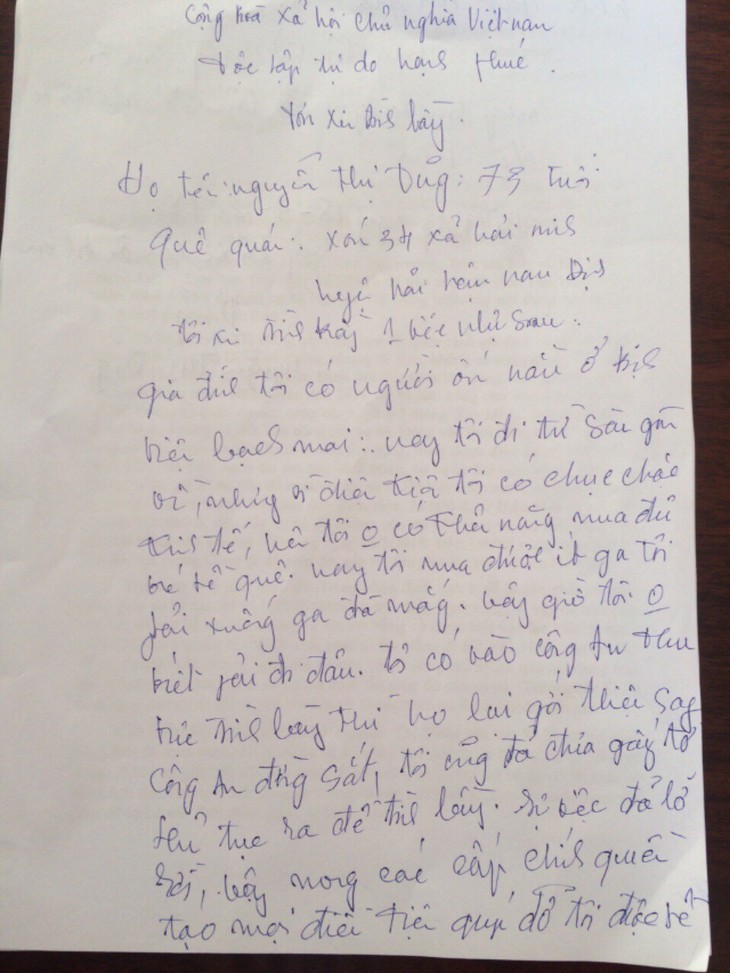 Cộng hoà xả hội chủ nghĩa Việt nam
Độc lập tự do hạnh
Đơn xin
Họ tên: nguyễn thị Dũg: 73 tuổi
Quê quán: xóm 34 xả hải
hải hậu nam
tôi xin 1 việc như sau:
gia đình tôi có người ốm nằm ở
viện bạch mai: nay tôi đi từ Sài gòn
về, nhưg vì điều kiện tôi có chục chặc
kinh tế, nên tôi 0 có khả năng mua đủ
vé về quê. nay tôi mua được ít ga tôi
xuống ga đà nẵg. bây giờ tôi 0
biết phải đi đâu. tôi có vào công An khu
vực bày thì họ lại giới thiệu sag
Công An đừg Sắt, tôi cũg đả chìa giấy tờ
thủ tục ra để bày. Sự việc đả lở
rồi, vậy mong các cấp chính quyền
tạo mọi điều kiện giúp đở tôi được về